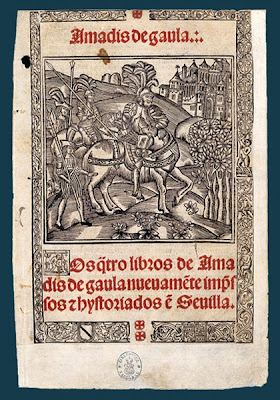 Amadis de gaula.:.
Los q̃tro libros de Ama
dis de gaula nueuamẽte impſ
ſos ⁊ hyſtoriados ẽ Seuilla.